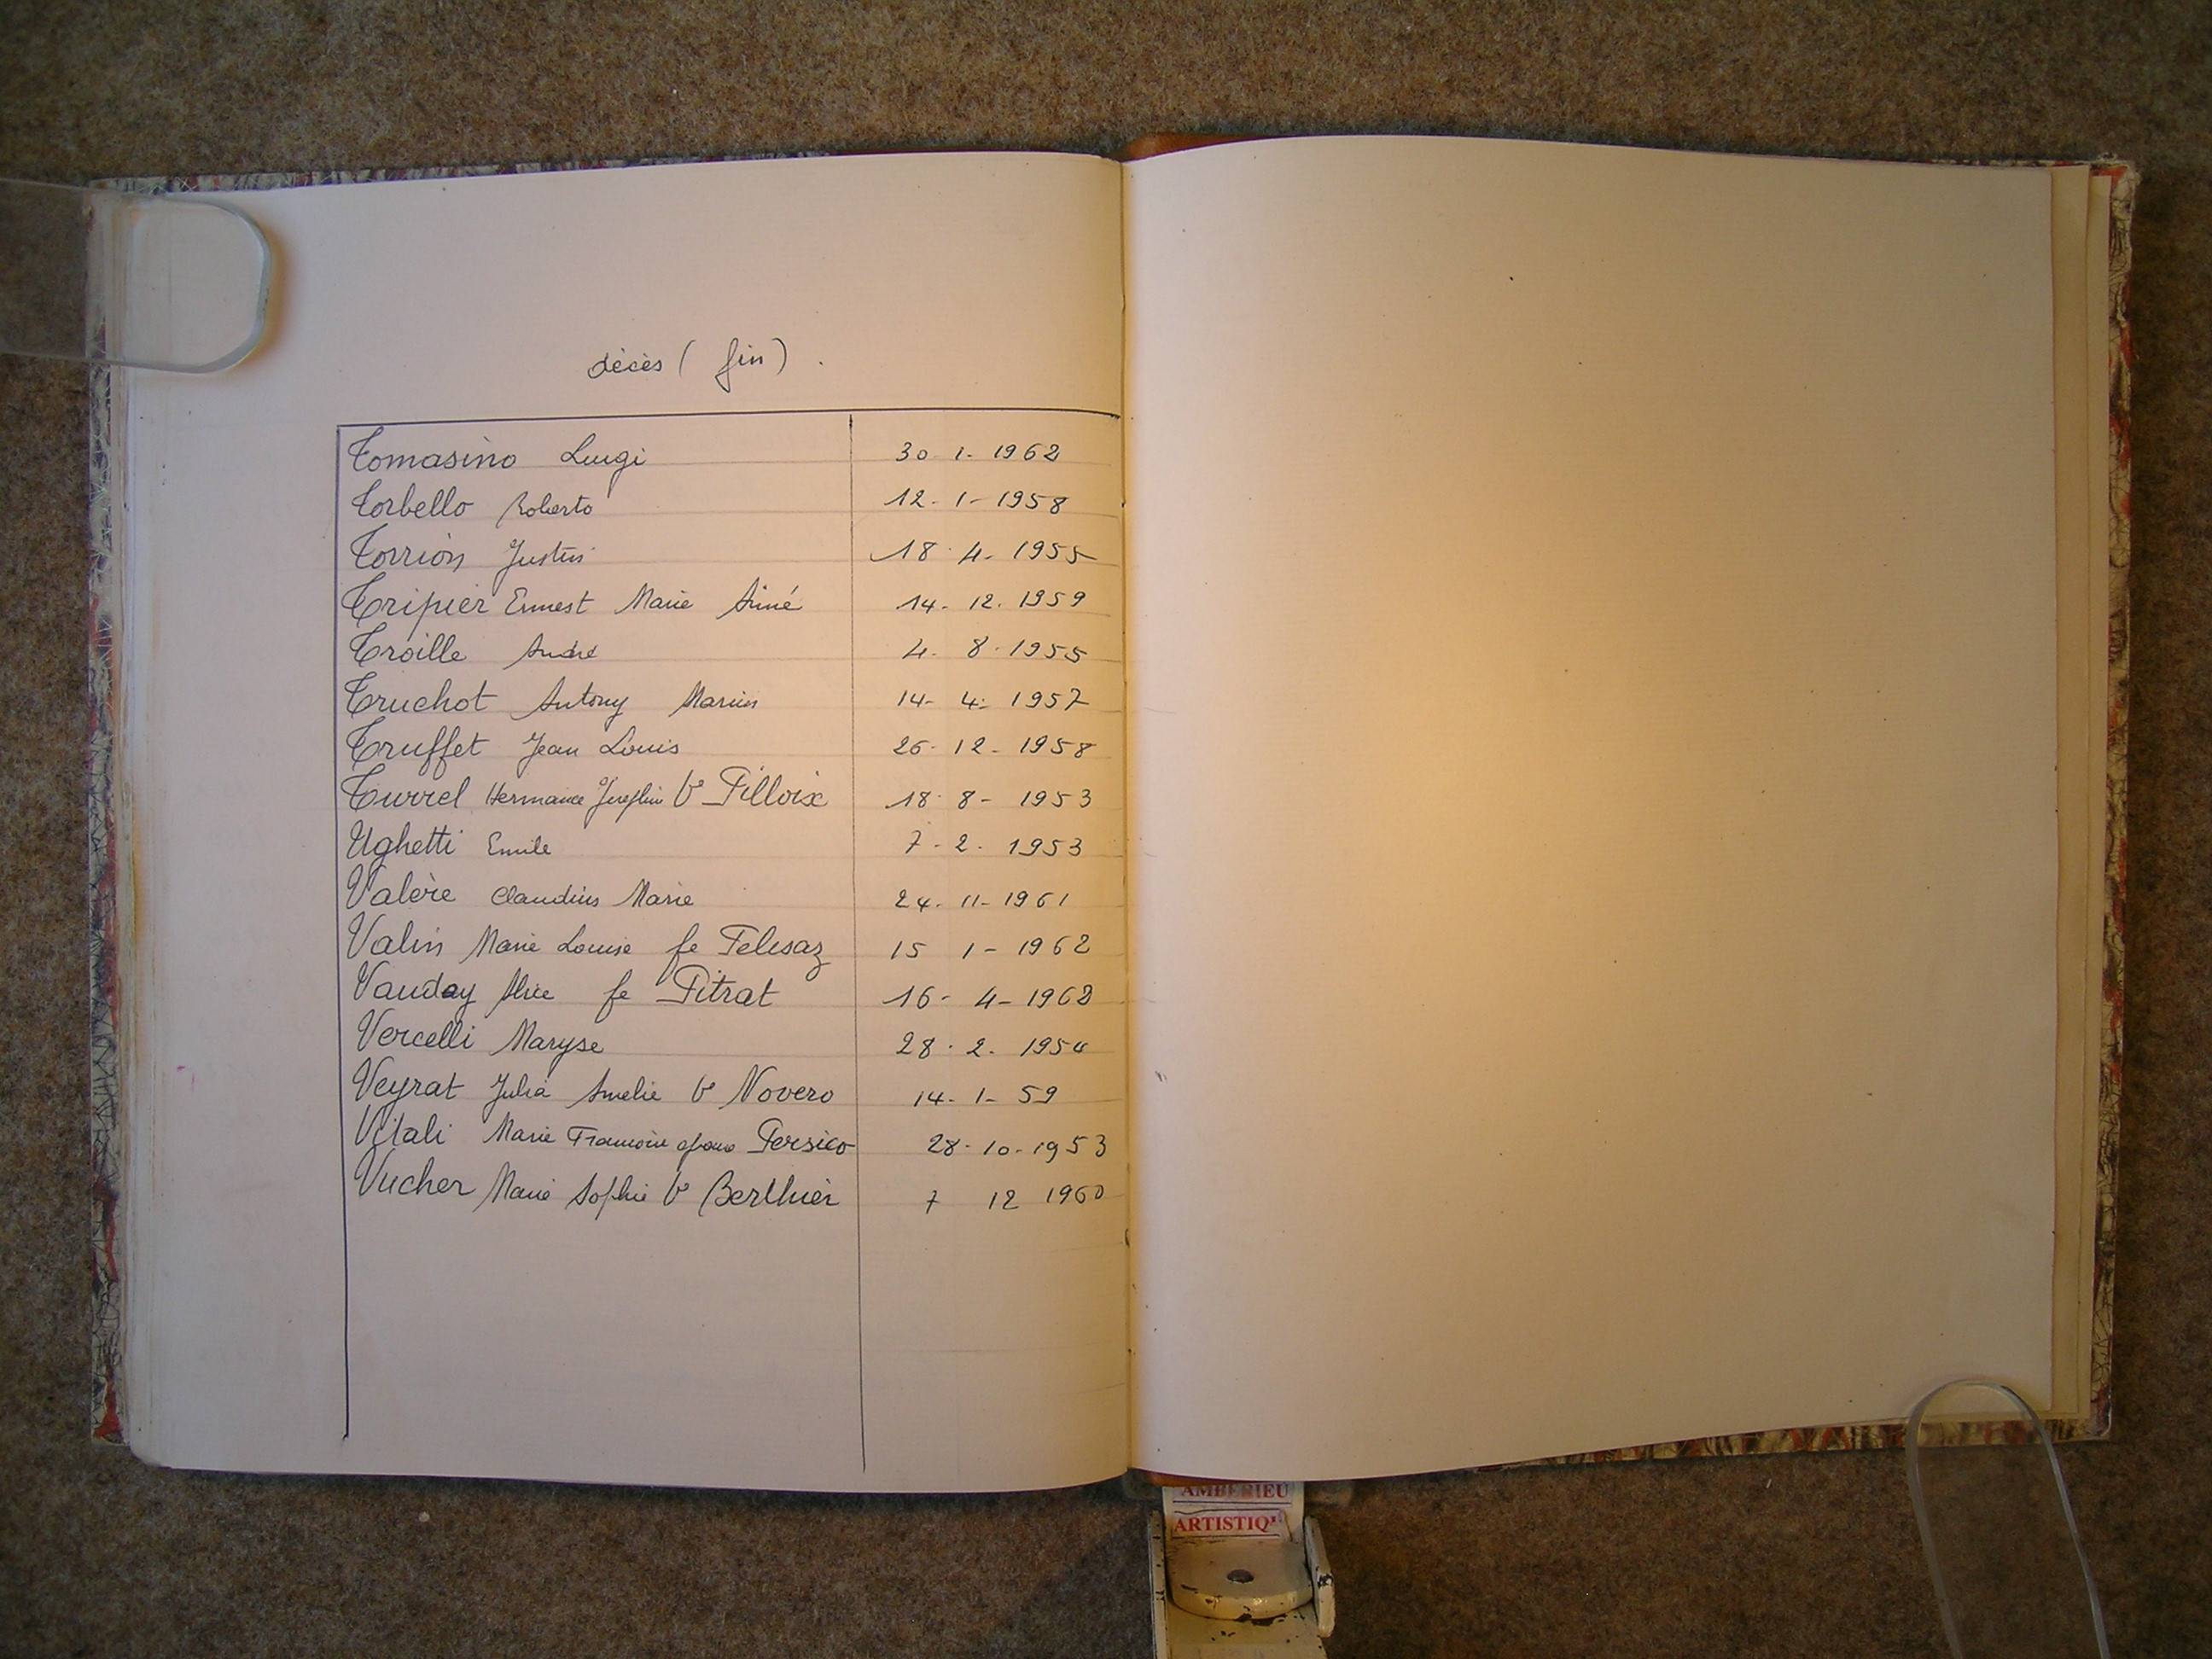 décès ( fin ) .
Tomasino Luigi 30 - 1 - 1962
Torbello Roberto 12 - 1 - 1958
Torrion Justin 18 - 4 - 1955
Tripier Ernest Marie Aimé 14 - 12 - 1959
Troille André 4 - 8 - 1955
Truchot Antony Marius 14 - 4 - 1957
Truffet Jean Louis 26 - 12 - 1958
Turrel Hermance V Pilloix 18 - 8 - 1953
Ughetti Emile 7 - 2 - 1953
Valère Claudius Marie 24 - 11 - 1961
Valin Marie Louise fe Pelisaz 15 1 - 1962
Vauday Alice fe Pitrat 16 - 4 - 1962
Vercelli Maryse 28 - 2 -
Veyrat Julia Amelie V Novero 14 - 1 - 59
Vitali Marie Françoise Persico 28 - 10 - 1953
Vucher Marie Sophie V Berthier 7 12 1960
AMBERIEU
ARTISTIQ